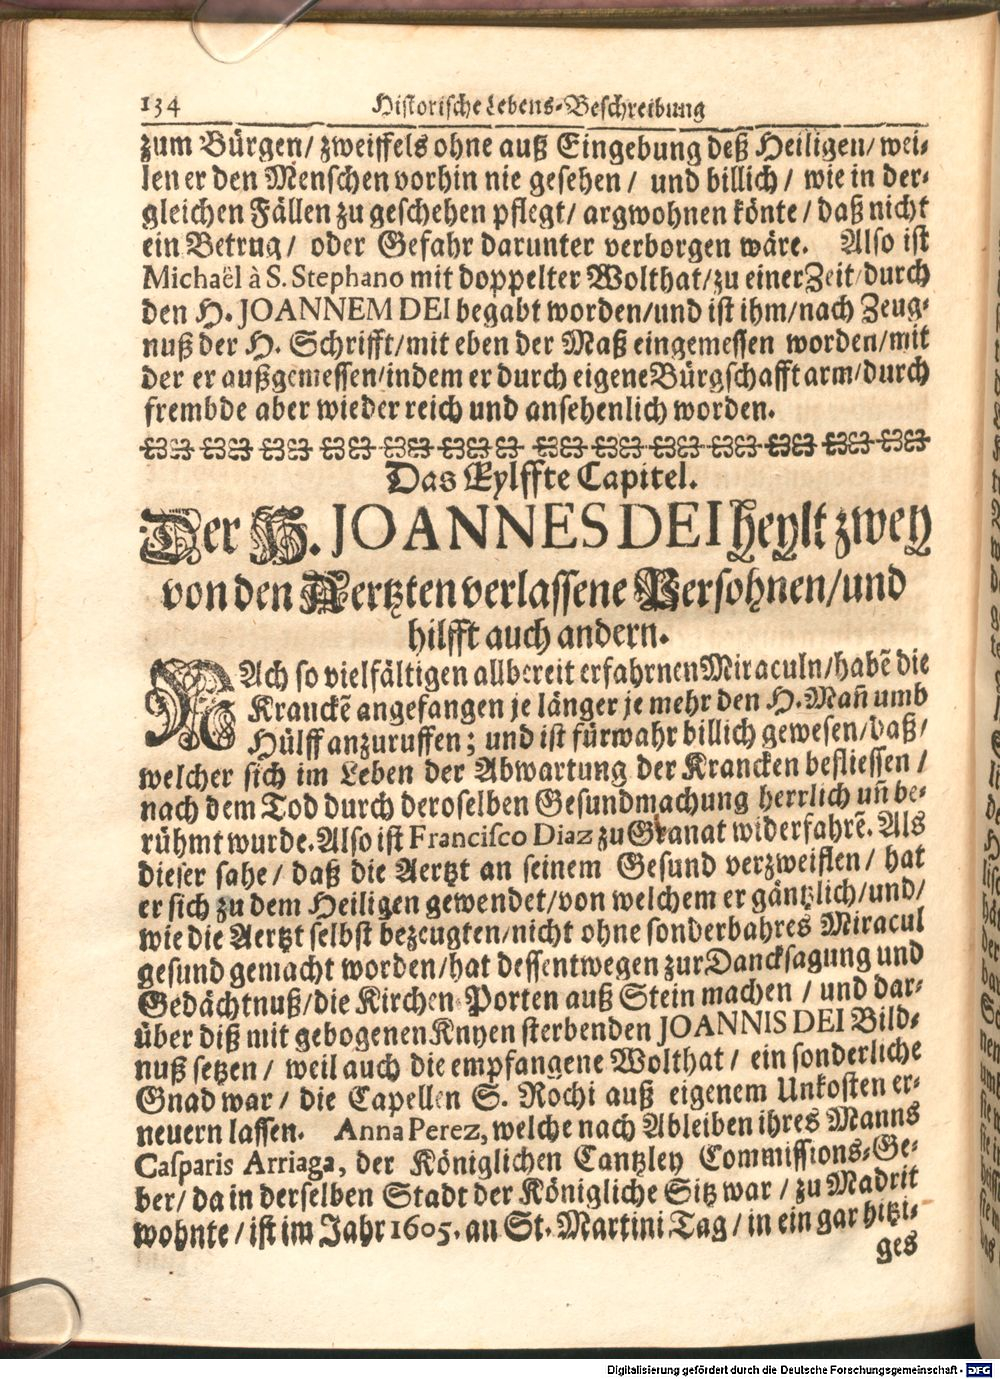 134 Historische Lebens-Beschreibung
zum Bürgen/ zweiffels ohne auß Eingebung deß Heiligen/ wei-
len er den Menschen vorhin nie gesehen / und billich / wie in der-
gleichen Fällen zu geschehen pflegt/ argwohnen könte / daß nicht
ein Betrug / oder Gefahr darunter verborgen wäre. Also ist
Michaël à S. Stephano mit doppelter Wolthat/zu einer Zeit/durch
den H. JOANNEM DEI begabt worden/und ist ihm/nach Zeug-
nuß der H. Schrifft/mit eben der Maß eingemessen worden/mit
der er außgemessen/indem er durch eigene Bürgschafft arm/durch
frembde aber wieder reich und ansehenlich worden.
Das Eylffte Capitel.
Der H. JOANNES DEI heylt zwey
von den Aertzten verlassene Persohnen/und
hilfft auch andern.
NAch so vielfältigen allbereit erfahrnen Miraculn/habẽ die
Kranckẽ angefangen je länger je mehr den H. Mañ umb
Hülff anzuruffen; und ist fürwahr billich gewesen/daß/
welcher sich im Leben der Abwartung der Krancken befliessen /
nach dem Tod durch deroselben Gesundmachung herrlich uñ be-
rühmt wurde. Also ist Francisco Diaz zu Granat widerfahrẽ. Als
dieser sahe / daß die Aertzt an seinem Gesund verzweiflen / hat
er sich zu dem Heiligen gewendet/von welchem er gäntzlich/und/
wie die Aertzt selbst bezeugten/nicht ohne sonderbahres Miracul
gesund gemacht worden/hat dessentwegen zur Dancksagung und
Gedächtnuß/die Kirchen-Porten auß Stein machen / und dar-
über diß mit gebogenen Knyen sterbenden JOANNIS DEI Bild-
nuß setzen / weil auch die empfangene Wolthat / ein sonderliche
Gnad war / die Capellen S. Rochi auß eigenem Unkosten er-
neuern lassen. Anna Perez, welche nach Ableiben ihres Manns
Casparis Arriaga, der Königlichen Cantzley Commissions-Ge-
ber/ da in derselben Stadt der Königliche Sitz war / zu Madrit
wohnte / ist im Jahr 1605. an St. Martini Tag / in ein gar hitzi-
ges
Digitalisierung gefördert durch die Deutsche Forschungsgemeinschaft - DFG